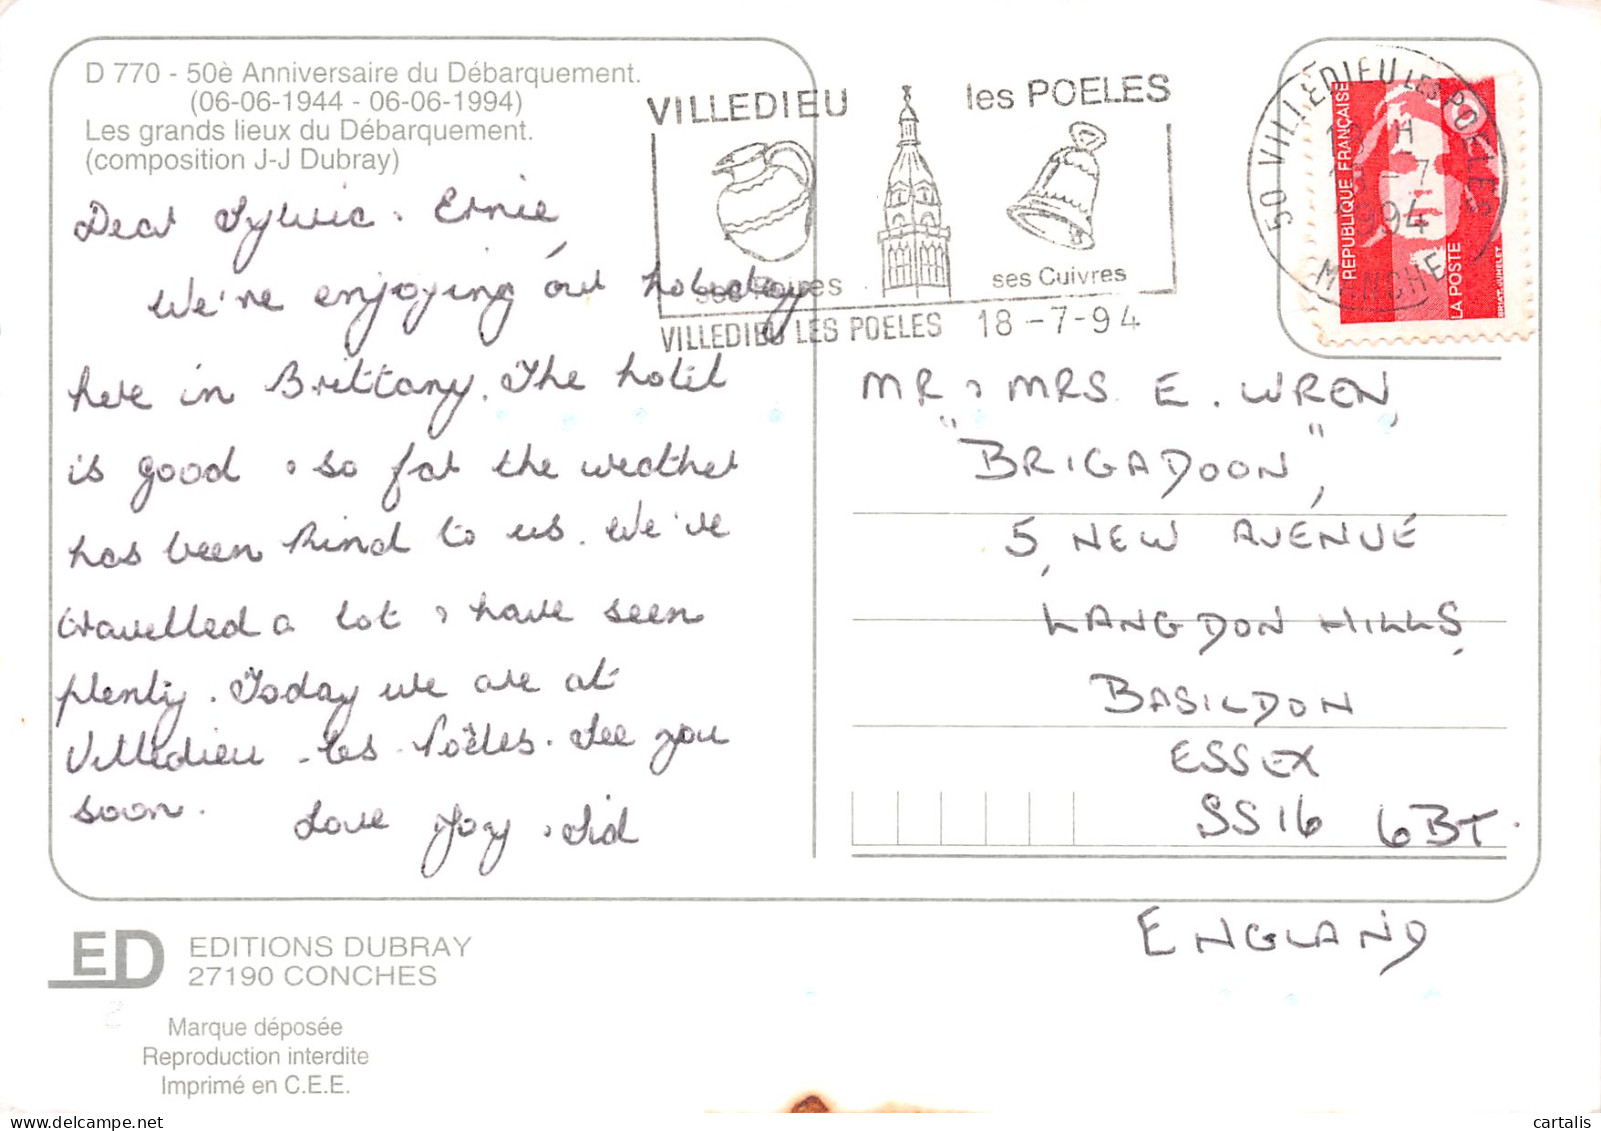 D 770 - 50è Anniversaire du Débarquement.
(06-06-1944 - 06-06-1994)
Les grands lieux du Débarquement.
(composition J-J Dubray)
Dear Sylvie & Ernie,
We're enjoying our holiday
here in Brittany. The hotel
is good & so far the weather
has been kind to us. We've
travelled a lot & have seen
plenty. Today we are at
Villedieu-les-Poëles. See you
soon.
Love Joy & Sid
VILLEDIEU les POELES
ses Cuivres
VILLEDIEU LES POELES 18-7-94
50 VILLEDIEU LES POELES
18-7
1994
MANCHE
REPUBLIQUE FRANÇAISE
LA POSTE
BRIAT-JUMELET
MR & MRS E. WREN,
"BRIGADOON",
5, NEW AVENUE
LANGDON HILLS,
BASILDON
ESSEX
SS16 6BT.
ENGLAND
ED EDITIONS DUBRAY
27190 CONCHES
Marque déposée
Reproduction interdite
Imprimé en C.E.E.
cartalis